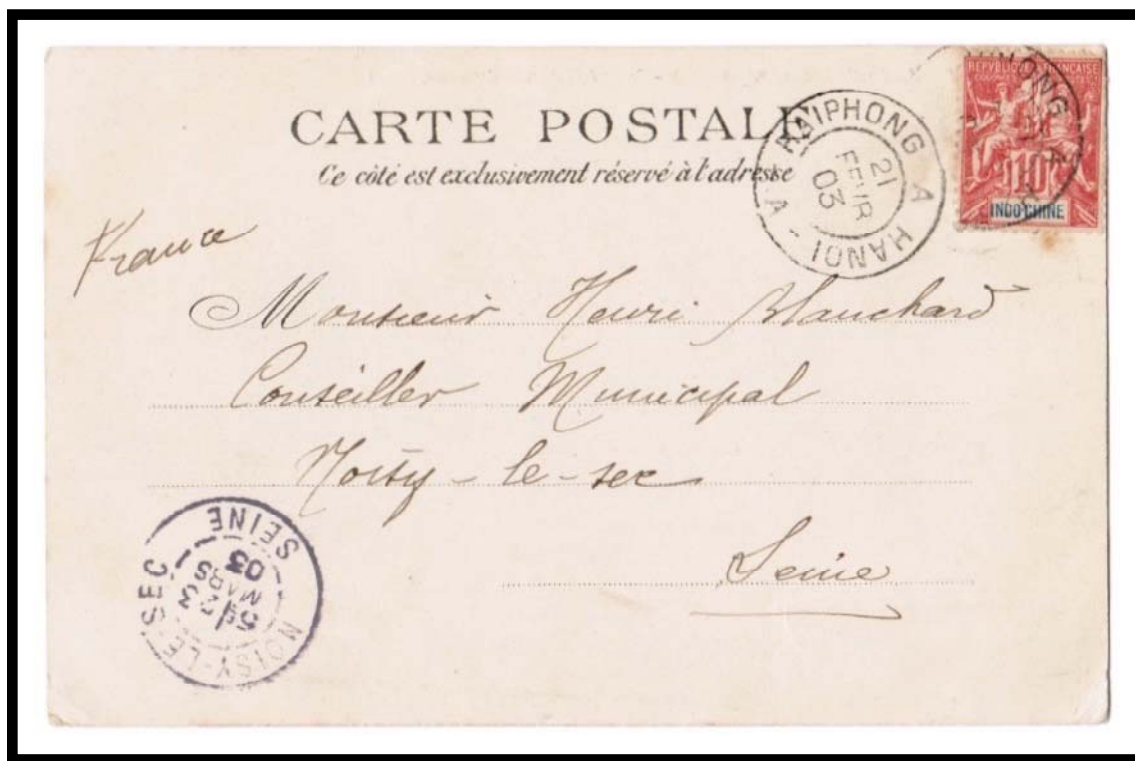 CARTE POSTALE
Ce côté est exclusivement réservé à l'adresse
HAIPHONG A HANOI - A -
21
FEVR
03
REPUBLIQUE FRANÇAISE
COLONIES POSTES
10
INDO-CHINE
France
Monsieur Henri Blanchard
Conseiller Municipal
Noisy-le-sec
Seine
NOISY-LE-SEC SEINE
5E
23
MARS
03